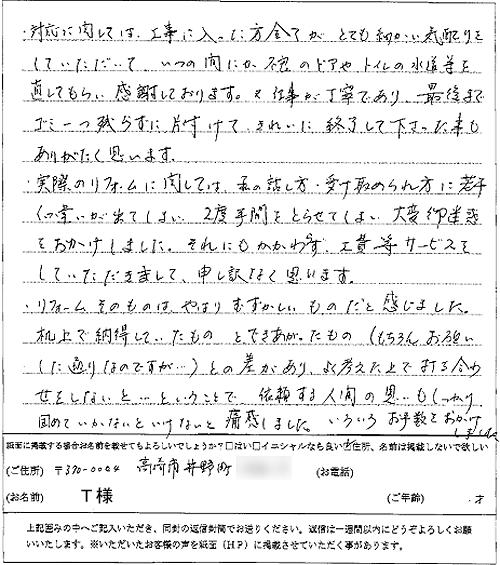 ・対応に関しては、工事に入った方全てが とても細かい気配りを
していただいて いつの間にか 他のドアや トイレの水道等を
直してもらい 感謝しております。又 仕事が丁寧であり、最後まで
ゴミ一つ残らずに片付けて、きれいに 終了して下さった事も
ありがたく思います。
・実際のリフォームに関しては、私の話し方・受け取められ方に若干
くい違いが出てしまい 2度手間をとらせてしまい 大変御迷惑
をおかけしました。それにもかかわず、工費等サービスを
していただきまして、申し訳なく思います。
・リフォームそのものは、やはり むずかしい ものだと感じました。
机上で納得していたもの とできあがったもの (もちろん お願い
した通りなのですが…) との 差があり、よく考えた上で 打ち合わ
せをしないと…ということで、依頼する人間の思いもしっかり
固めていかないといけないと 痛感しました。いろいろ お手数をおかけ
しました
紙面に掲載する場合お名前を載せてもよろしいでしょうか?□はい□イニシャルなら良い☑住所、名前は掲載しないで欲しい
(ご住所) 〒370-0004 高崎市井野町 (お電話)
(お名前) T様 (ご年齢) 才
上記囲みの中へご記入いただき、同封の返信封筒でお送りください。返信は一週間以内にどうぞよろしくお願
いいたします。※いただいたお客様の声を紙面(HP)に掲載させていただく事があります。